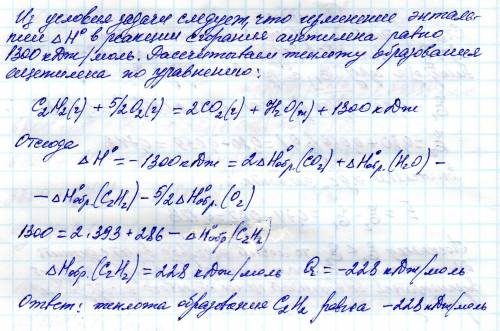 Из условия задачи следует, что изменение энталь-
пии ΔH° в реакции сгорания ацетилена равно
1300 кДж/моль. Рассчитываем теплоту образования
ацетилена по уравнению:
C₂H₂(г) + 5/2O₂(г) = 2CO₂(г) + H₂O(ж) + 1300 кДж
Отсюда
ΔH° = -1300 кДж = 2ΔH°обр.(CO₂) + ΔH°обр.(H₂O) -
- ΔH°обр.(C₂H₂) - 5/2ΔH°обр.(O₂)
1300 = 2·393 + 286 - ΔH°обр(C₂H₂)
ΔHобр.(C₂H₂) = 228 кДж/моль Q = -228 кДж/моль
Ответ: теплота образования C₂H₂ равна -228 кДж/моль